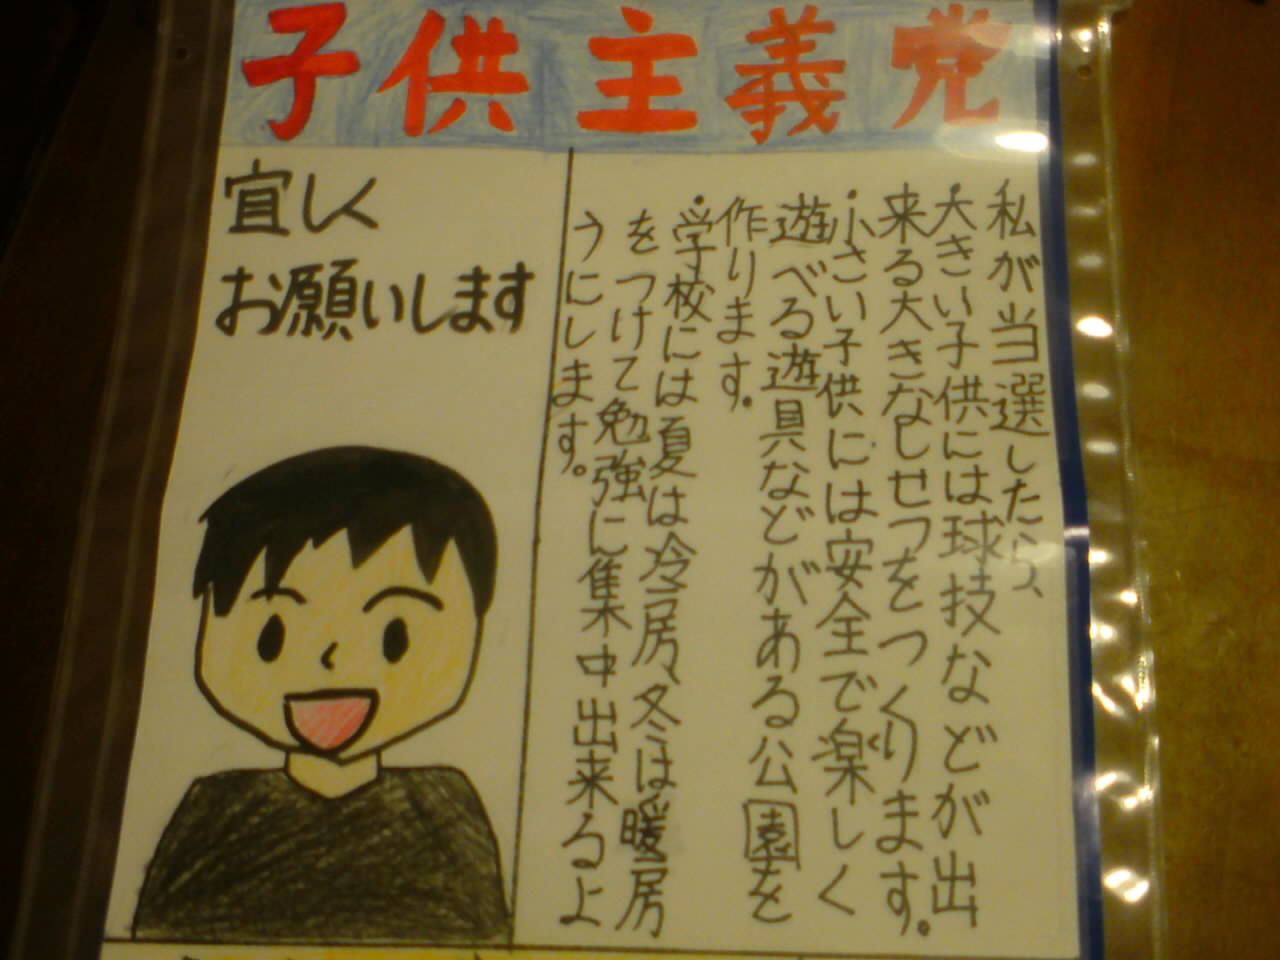 子供主義党
宜しく
お願いします
私が当選したら、
・大きい子供には球技などが出
来る大きなしせつをつくります。
・小さい子供には安全で楽しく
遊べる遊具などがある公園を
作ります。
・学校には夏は冷房、冬は暖房
をつけて勉強に集中出来るよ
うにします。